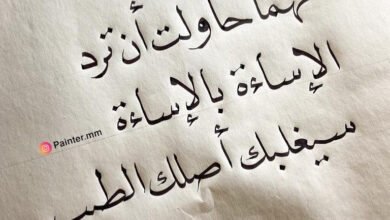 مهما حاولت أن ترد
الإساءة بالإساءة
Painter.mm
سيغلبك أصلك الطيب